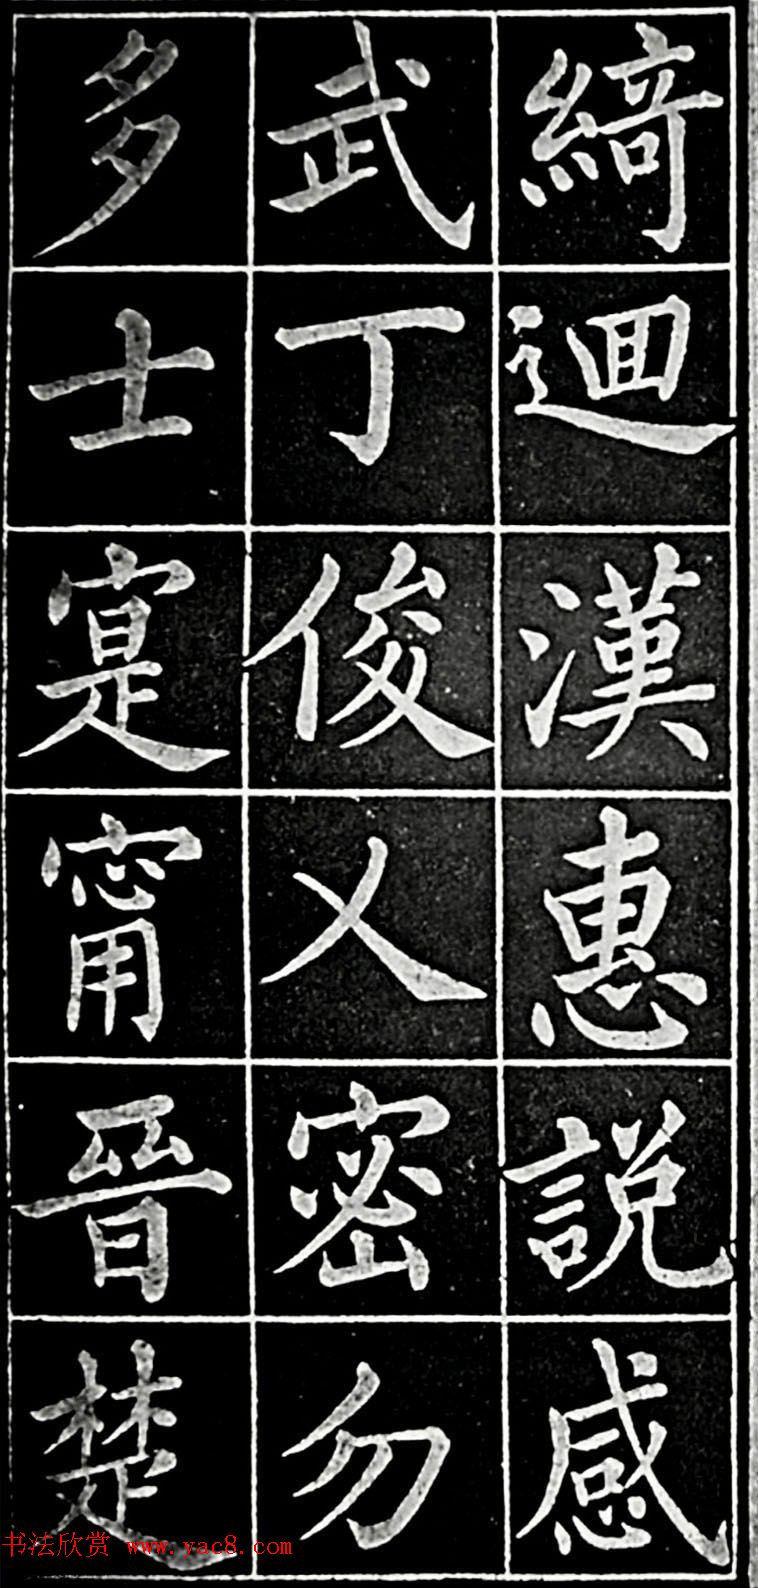 綺迴漢惠說感
武丁俊乂密勿
多士寔甯晉楚
书法欣赏 www.yac8.com